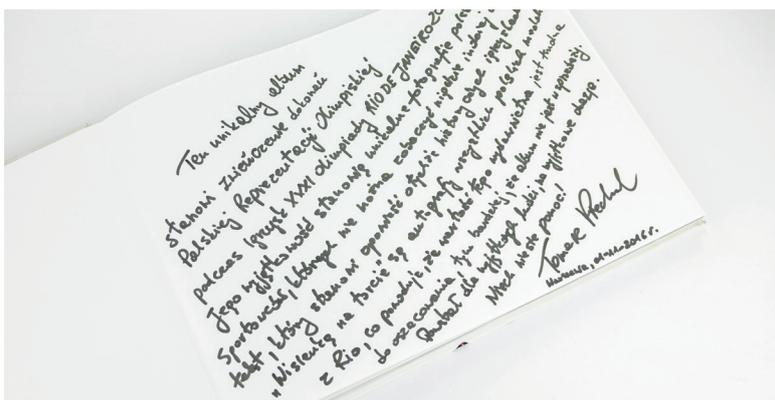 Ten unikalny album
stanowi zwieńczenie dokonań
Polskiej Reprezentacji Olimpijskiej
podczas Igrzysk XXXI Olimpiady RIO DE JANEIRO 20
Jego wyjątkowość stanowią unikalne fotografie pols
Sportowców, których nie można zobaczyć nigdzie indziej
tekst, który stanowi opowieść o tychże
„Wisienką na torcie" są autografy wszystkich polskich medal
z Rio, co powoduje, że wartość tego wydawnictwa jest trudna
do oszacowania, tym bardziej, że album nie jest w sprzedaży.
Powstał dla wyjątkowych ludzi, na wyjątkowe okazje.
Niech niesie pomoc!
Tomasz
Warszawa, 01-11-2016 r.